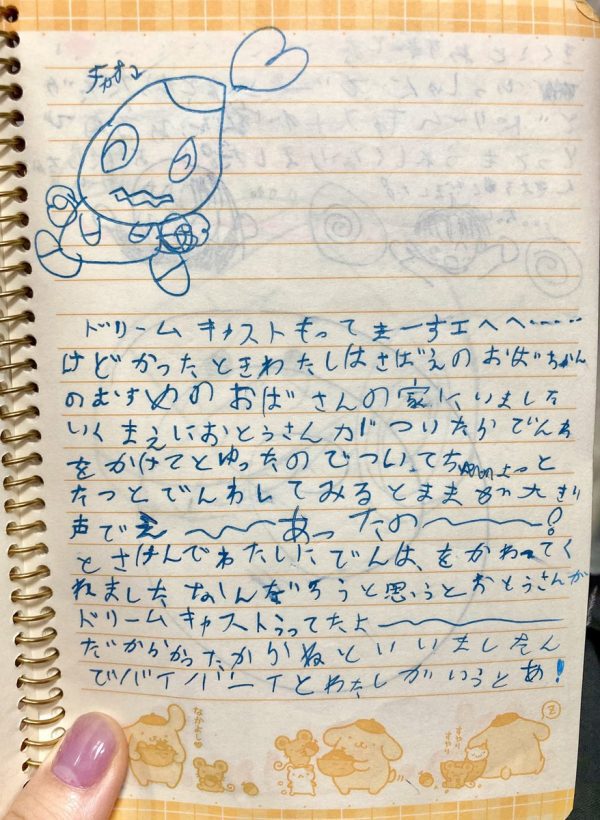 チャオ
ドリームキャストもってまーすエヘヘ……
けどかったときわたしはさばえのおばちゃん
のむすめのおばさんの家にいました
いくまえにおとうさんがついたらでんわ
をかけてとゆったのでついてちょっと
たつとでんわしてみるとままが大きい
声でえ〜〜〜あったの〜〜〜!?
とさけんでわたしにでんはをかわってく
れましたなんだろうと思うとおとうさんが
ドリームキャストうってたよ――――
だからかったからねといいましたん
でバイバーイとわたしがいうとあ!
なかよし♥
すやりすやり